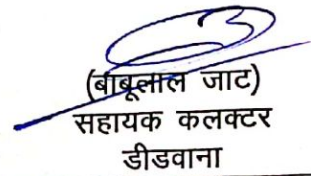 (बाबूलाल जाट)
सहायक कलक्टर
डीडवाना